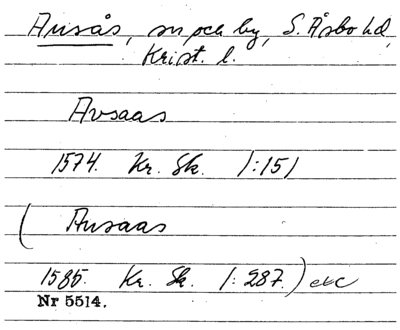 Ausås, sn och by, S. Åsbo hd,
Krist. l.
Avsaas
1574. Kr. Sk. 1:151
( Ausaas
1585. Kr. Sk. 1:287.) etc
Nr 5514.